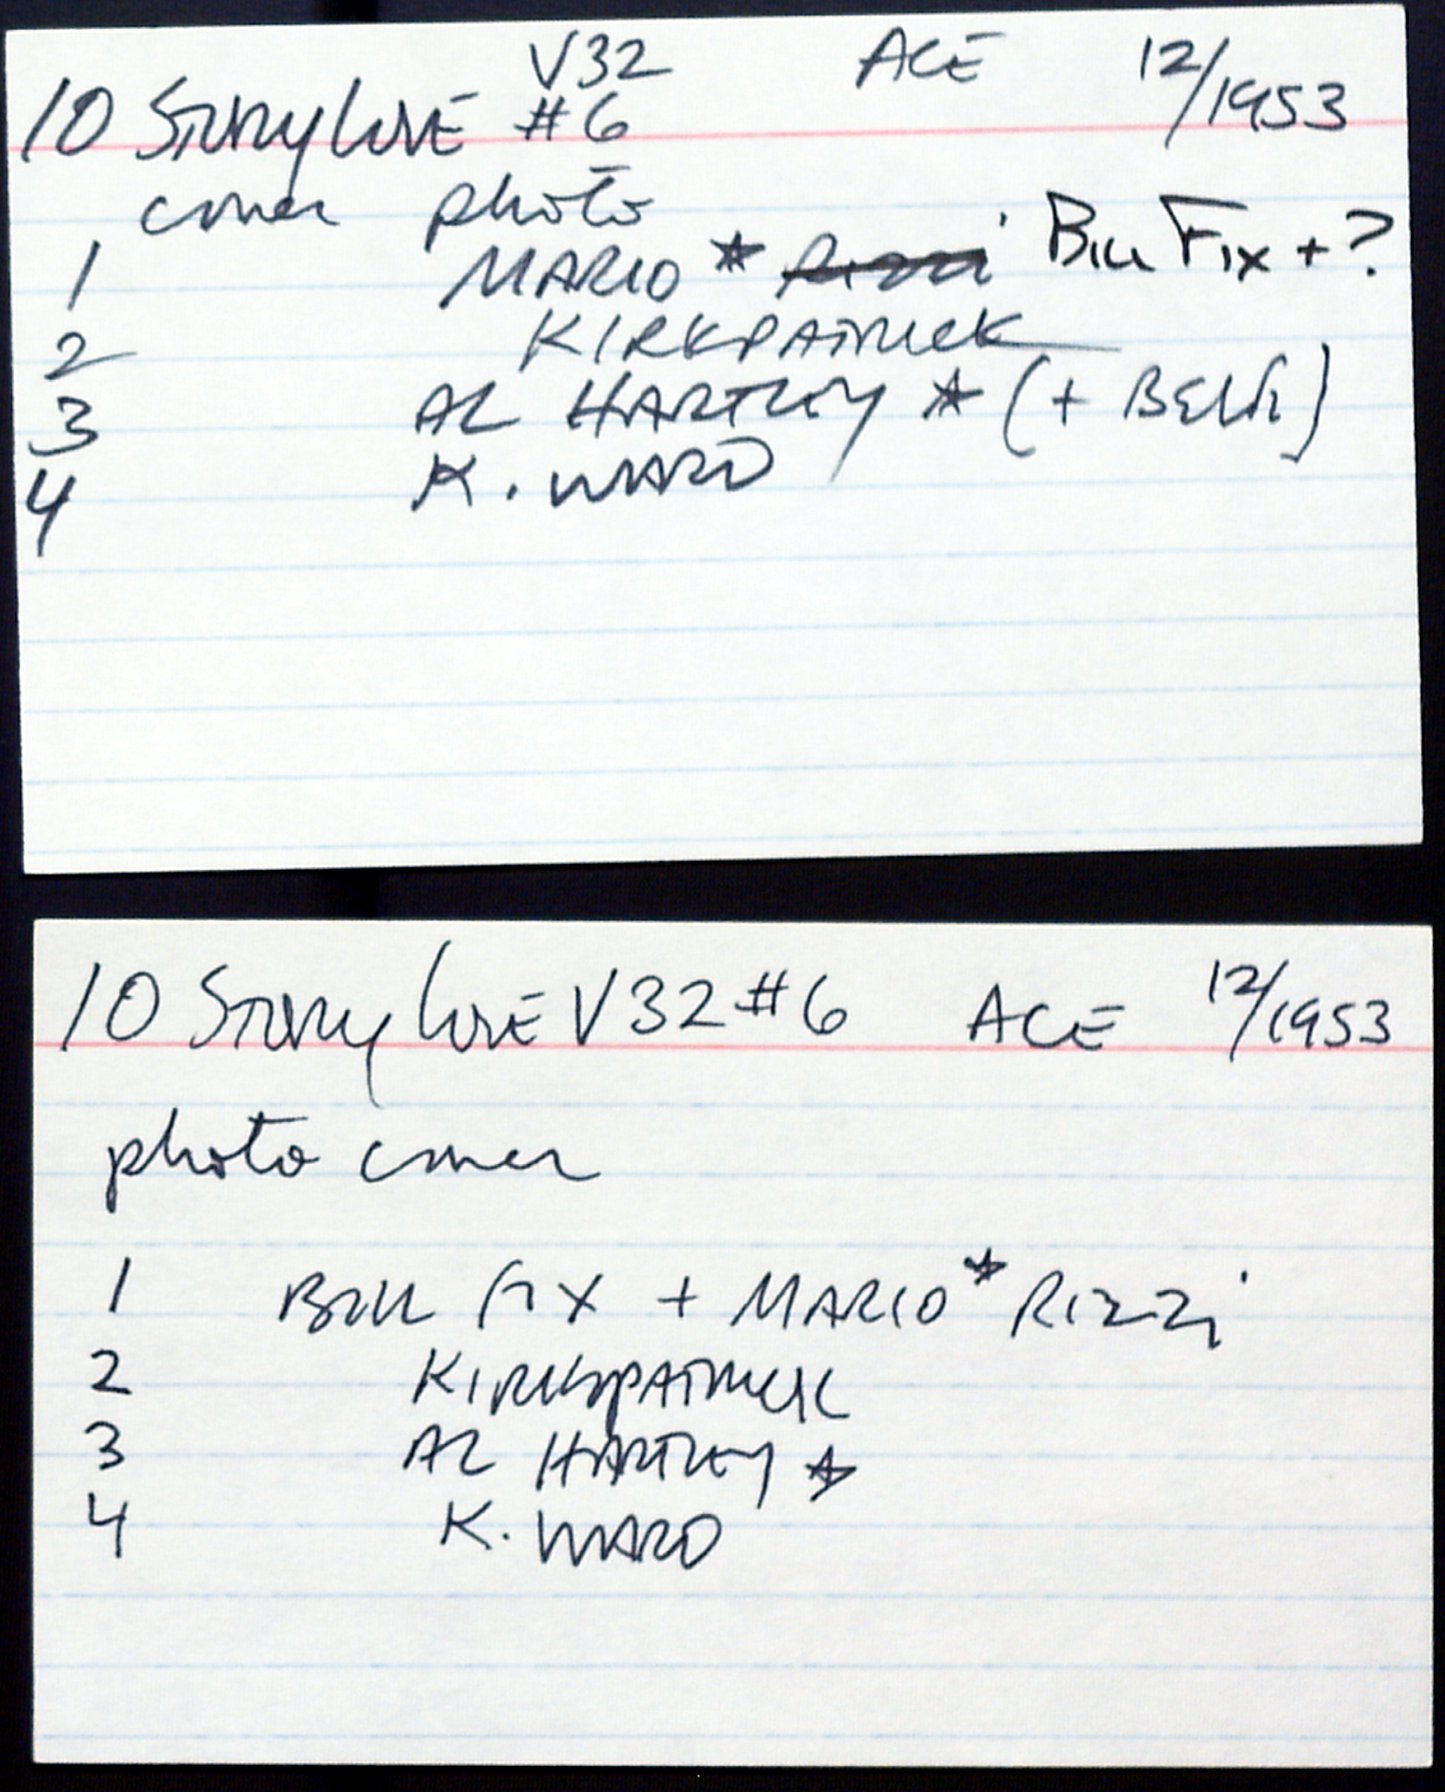 V32 ACE 12/1953
10 Story Love #6
cover photo
1 MARIO * Rizzi Bill Fix + ?
2 KIRKPATRICK
3 AL HARTLEY * (+ BELFI)
4 K. WARD
10 Story Love V32 #6 ACE 12/1953
photo cover
1 Bill Fix + MARIO * Rizzi
2 KIRKPATRICK
3 AL HARTLEY *
4 K. WARD